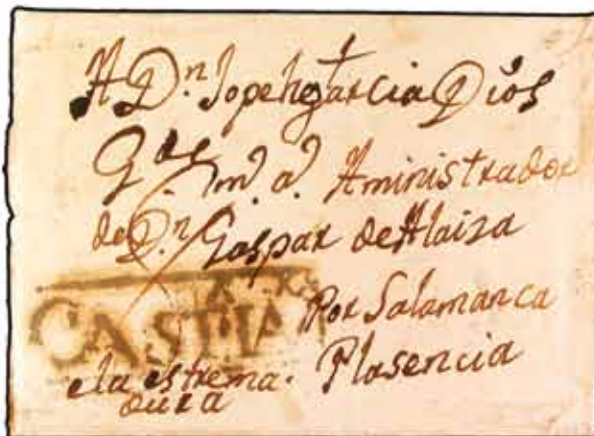 A D.n Joseph garcia Dios
G.de m.s a.s Aministrador
de D.n Gaspar de Alaiza
CASTI
Por Salamanca
Plasencia
ela estrema.
dura